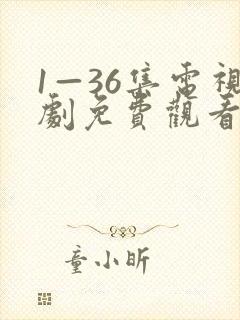 1—36集電視
劇免費觀看
童小昕